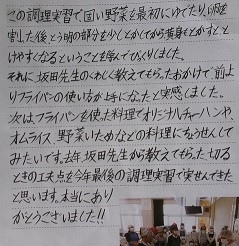 この調理実習で固い野菜を最初にゆでたり、卵を
割した後とう明の部分を少しとかしてから黄身をとかすとと
けやすくなるということを学んでびっくりました。
それに坂田先生のくわしく教えてもらったおかげで前より
フライパンの使い方が上手になったと実感しました。
次はフライパンを使た料理でオリジナルチャーハンや、
オムライス、野菜いためなどの料理にちょうせんして
みたいです。去年坂田先生から教えてもらった切る
ときの工夫点を今年最後の調理実習で実せんできた
と思います。本当にあり
がとうございました!!